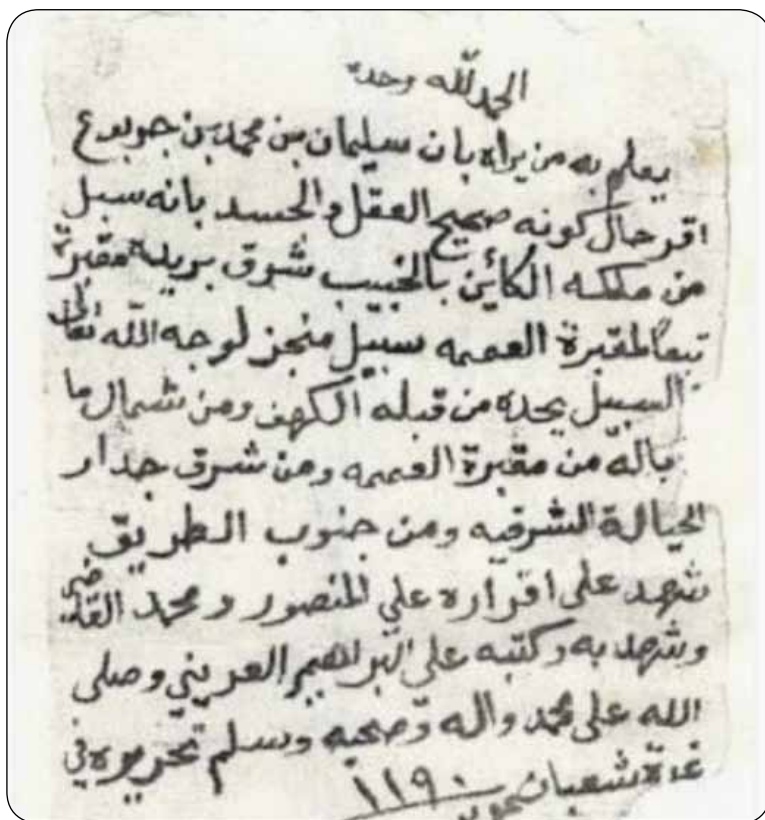 الحمد لله وحده
يعلم به من يراه بان سليمان بن محمد بن جوبوع
اقر حال كونه صحيح العقل والجسد بانه سبل
من ملكه الكائن بالخبيب شرق بريدة مقبرة
تبعاً لمقبرة العميمه سبيل منجز لوجه الله تعالى
السبيل يحده من قبله الكهف ومن شمال ما
باله من مقبرة العميمه ومن شرق جدار
الحيالة الشرقيه ومن جنوب الطريق
شهد على اقراره علي المنصور ومحمد القاضي
وشهد به وكتبه علي البراهيم العريني وصلى
الله على محمد واله وصحبه وسلم تحريره في
غرة شعبان ١١٩٠